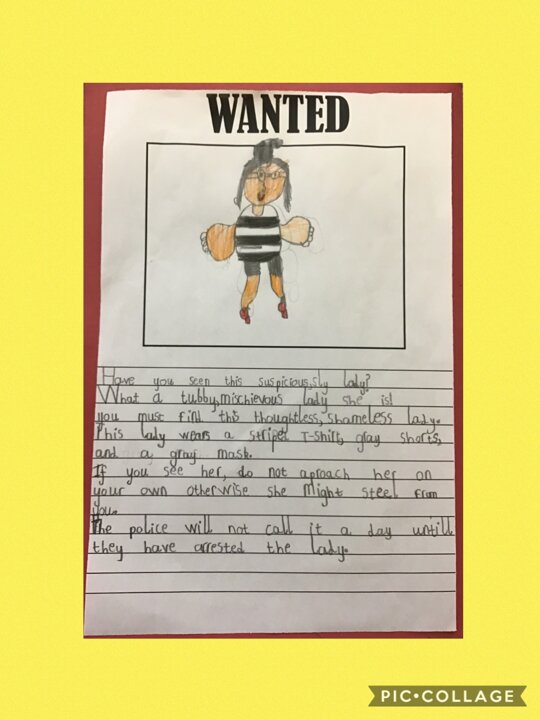 WANTED
Have you seen this suspicious,sly lady?
What a tubby,mischievous lady she is!
you must find this thoughtless, shameless lady.
This lady wears a stripet T-shirt, gray shorts,
and a gray mask.
If you see her, do not aproach her on
your own otherwise she might steel from
you.
The police will not call it a day untill
they have arrested the lady.
PIC•COLLAGE